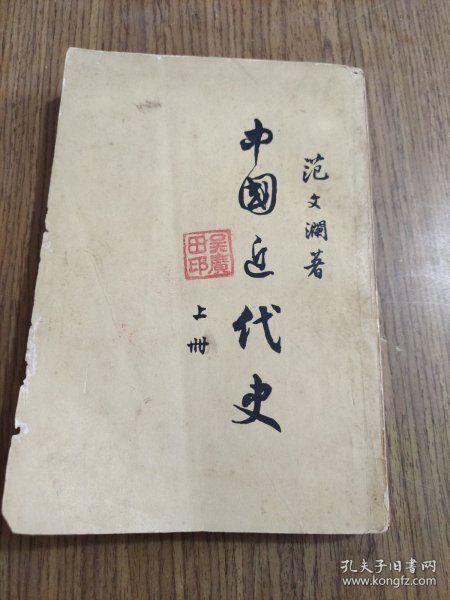 范文瀾著
中國近代史
上冊
吴广田印
孔夫子旧书网
www.kongfz.com